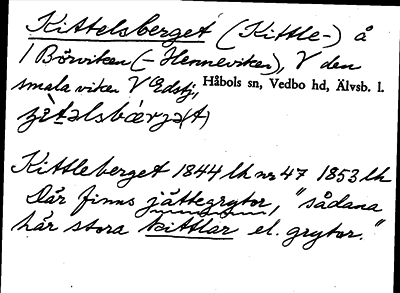 Kittelsberget (Kittle-) å
l Börviken (- Henneviken), V den
smala viken V Edstj., Håbols sn, Vedbo hd, Älvsb. l.
Kittleberget 1844 lk nr 47 1853 lk
Där finns jättegrytor, "sådana
här stora kittlar el. grytor."